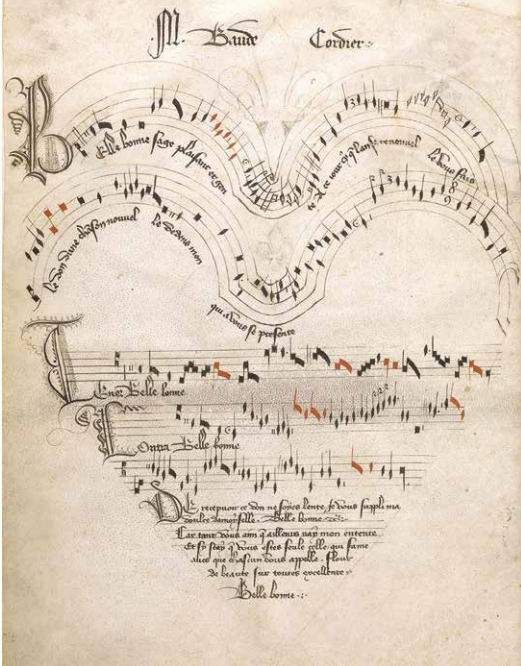 M. Baude Cordier
Belle bonne sage plaisant et gen
te A ce iour cy que lan se renouvel le Vous fais
le don dune chanson nouvel le Dedens mon
qui a vous se presente
Tenor Belle bonne
Contra Belle bonne
De recepvoir ce don ne soyes lente Je vous suppli ma
doulce damoyselle. Belle bonne
Car tant vous aim qu ailleurs nay mon entente
Et sy scay que vous estes seule celle qui fame
aves que chascun vous appelle. Flour
de beaute sur toutes excellente
Belle bonne